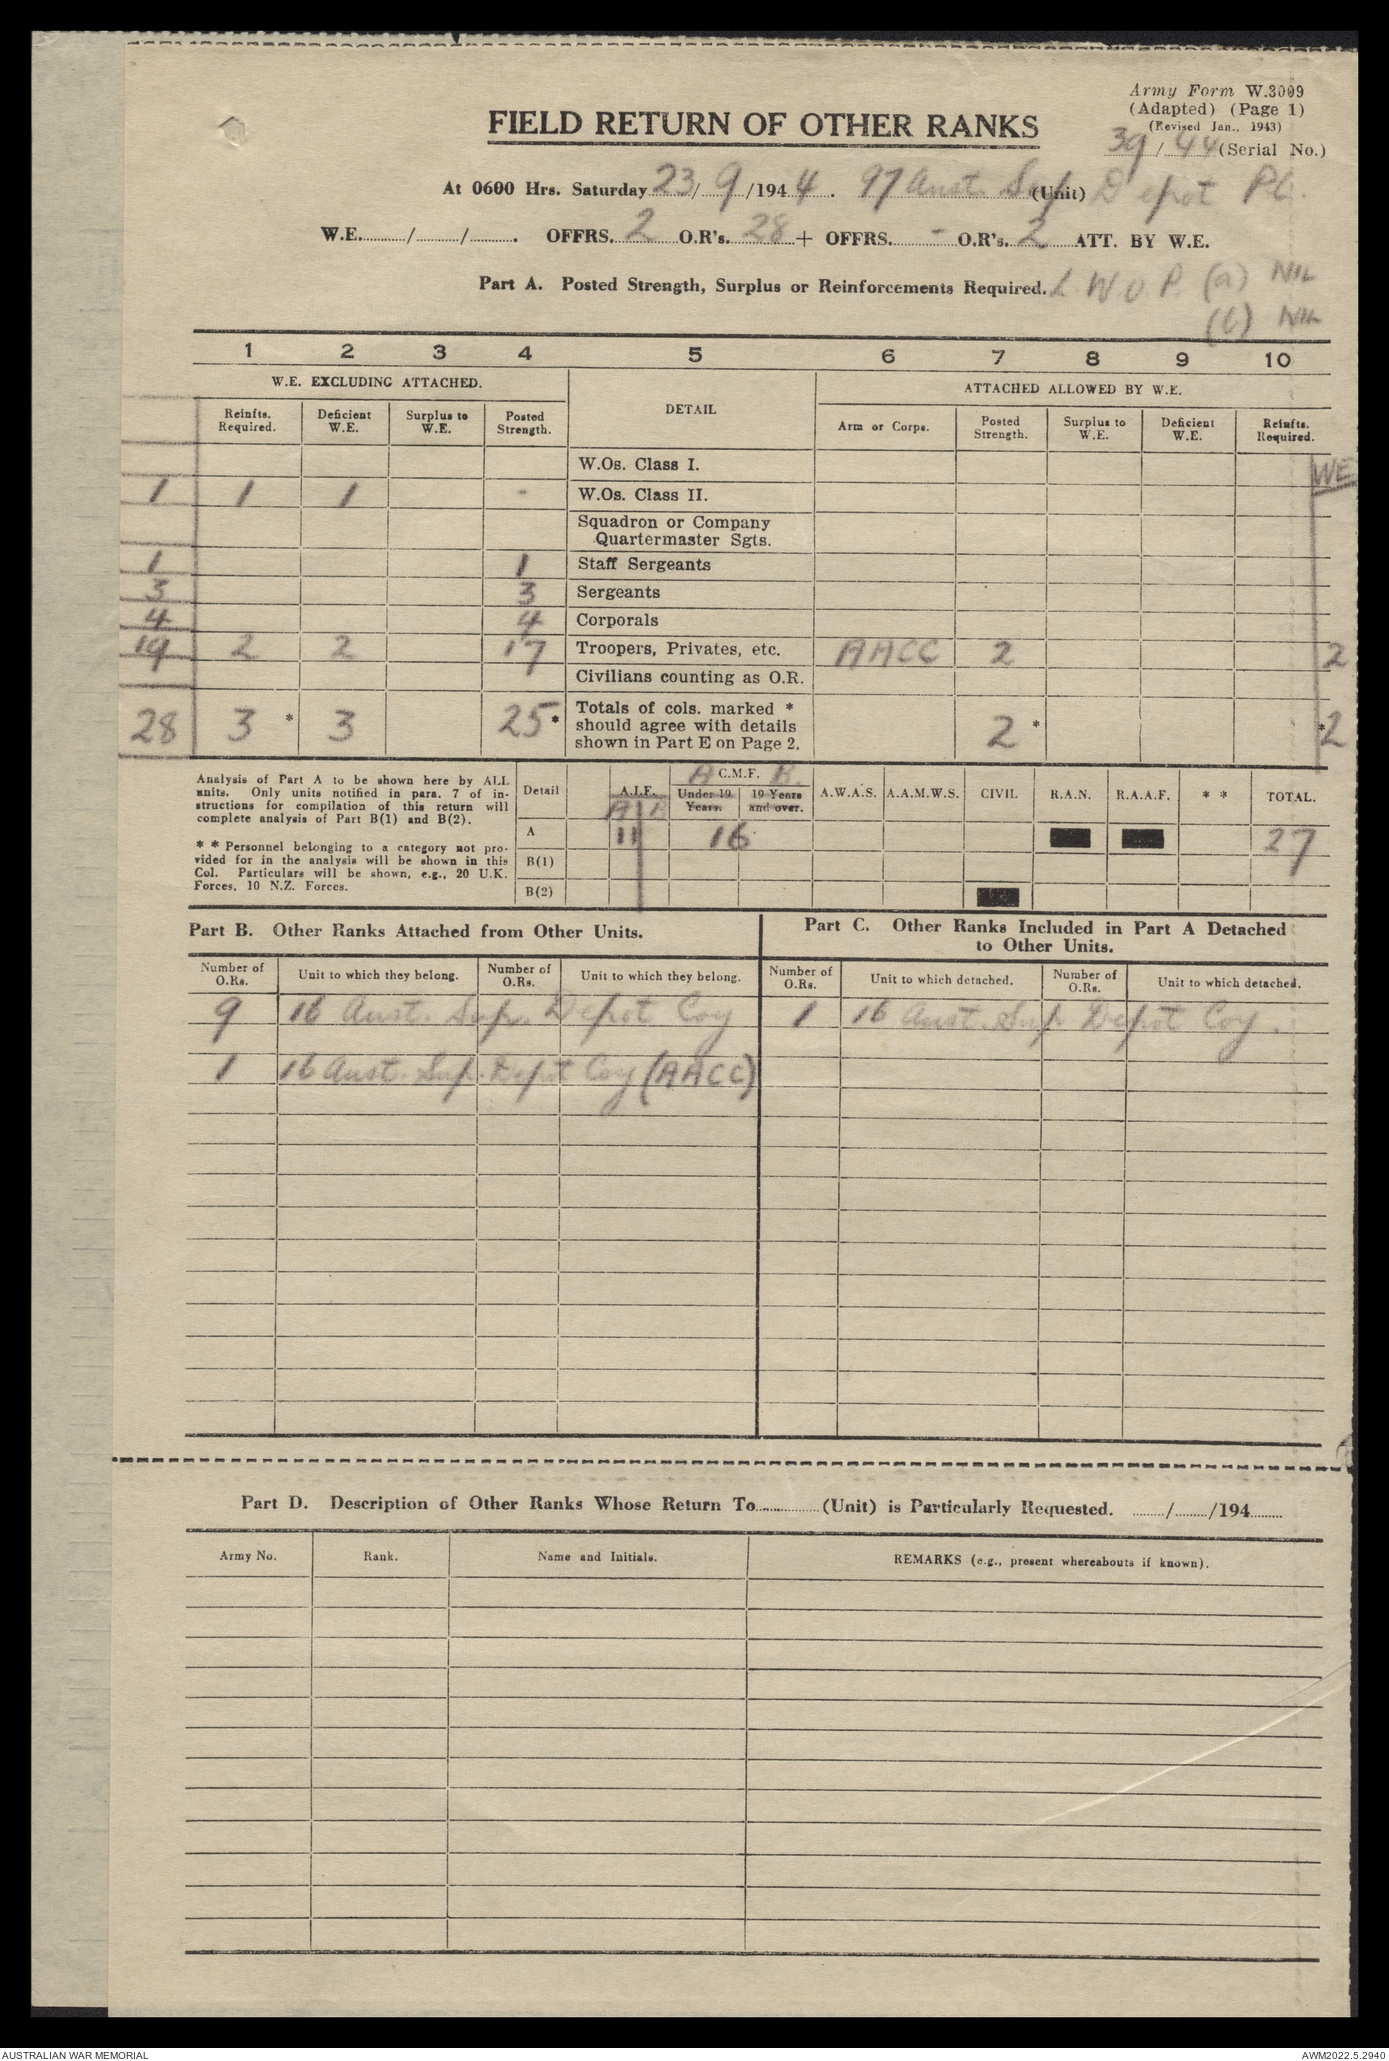 Army Form W.3009
(Adapted) (Page 1)
(Revised Jan., 1943)
39/44 (Serial No.)
FIELD RETURN OF OTHER RANKS
At 0600 Hrs. Saturday 23/9/1944. 97 Aust. Sup (Unit) Depot Pl.
W.E. / / . OFFRS. 2 O.R's. 28 + OFFRS. - O.R's. 2 ATT. BY W.E.
Part A. Posted Strength, Surplus or Reinforcements Required. L W O P. (a) NIL
(b) NIL
1 2 3 4 5 6 7 8 9 10
W.E. EXCLUDING ATTACHED. DETAIL ATTACHED ALLOWED BY W.E.
Reinfts. Required. Deficient W.E. Surplus to W.E. Posted Strength. Arm or Corps. Posted Strength. Surplus to W.E. Deficient W.E. Reinfts. Required.
W.Os. Class I. WE
1 1 1 - W.Os. Class II.
Squadron or Company
Quartermaster Sgts.
1 1 Staff Sergeants
3 3 Sergeants
4 4 Corporals
19 2 2 17 Troopers, Privates, etc. AACC 2 2
Civilians counting as O.R.
28 3 * 3 25 * Totals of cols. marked * should agree with details shown in Part E on Page 2. 2 * * 2
Analysis of Part A to be shown here by ALL
units. Only units notified in para. 7 of in-
structions for compilation of this return will
complete analysis of Part B(1) and B(2).
* * Personnel belonging to a category not pro-
vided for in the analysis will be shown in this
Col. Particulars will be shown, e.g., 20 U.K.
Forces, 10 N.Z. Forces.
Detail A.I.F. A C.M.F. B. A.W.A.S. A.A.M.W.S. CIVIL R.A.N. R.A.A.F. * * TOTAL.
A B Under 19 Years. 19 Years and over.
A 11 16 27
B(1)
B(2)
Part B. Other Ranks Attached from Other Units.
Number of O.Rs. Unit to which they belong. Number of O.Rs. Unit to which they belong.
9 16 Aust. Sup. Depot Coy
1 16 Aust. Sup. Depot Coy (AACC)
Part C. Other Ranks Included in Part A Detached
to Other Units.
Number of O.Rs. Unit to which detached. Number of O.Rs. Unit to which detached.
1 16 Aust. Sup Depot Coy.
Part D. Description of Other Ranks Whose Return To (Unit) is Particularly Requested. / /194
Army No. Rank. Name and Initials. REMARKS (e.g., present whereabouts if known).
AUSTRALIAN WAR MEMORIAL
AWM2022.5.2940